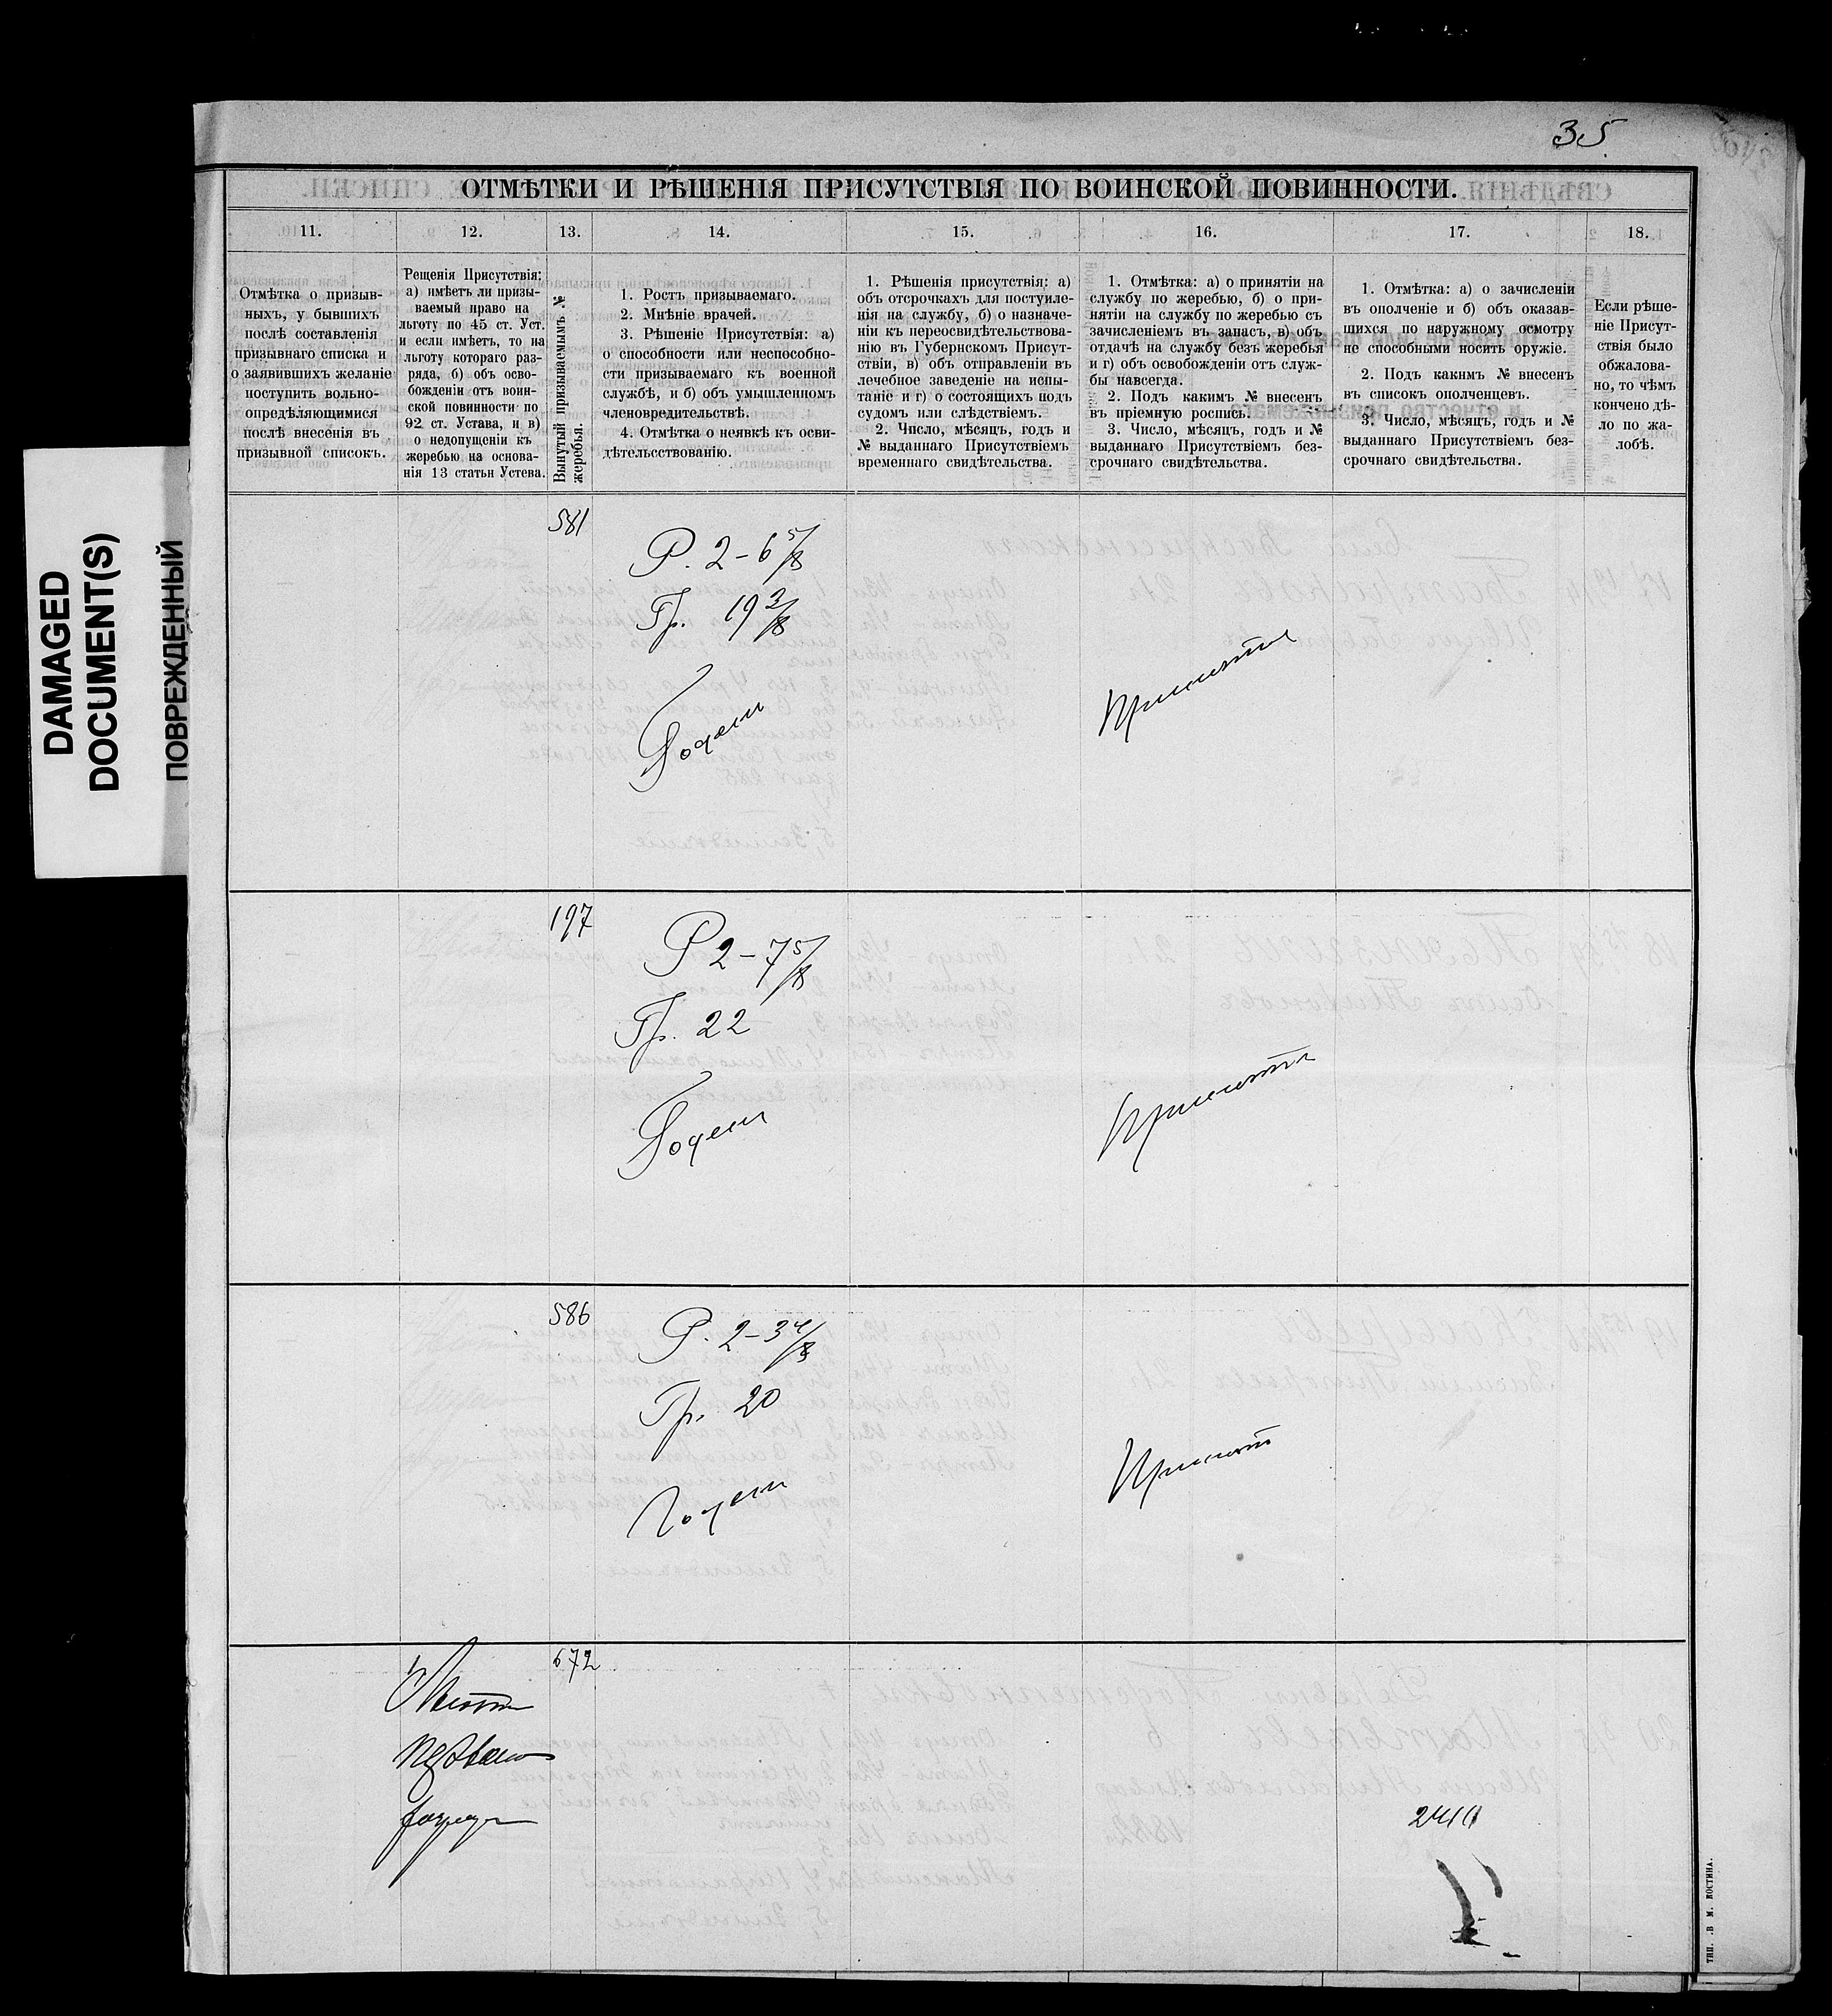 35
ОТМѢТКИ И РѢШЕНІЯ ПРИСУТСТВІЯ ПО ВОИНСКОЙ ПОВИННОСТИ.
11.
12.
13.
14.
15.
16.
17.
18.
Отмѣтка о призыв-
ныхъ, у бывшихъ
послѣ составленія
призывнаго списка и
о заявившихъ желаніе
поступить вольно-
опредѣляющимися
послѣ внесенія въ
призывной списокъ.
Рещенія Присутствія:
а) имѣетъ ли призы-
ваемый право на
льготу по 45 ст. Уст.
и если имѣетъ, то на
льготу котораго раз-
ряда, б) объ осво-
божденіи отъ воин-
ской повинности по
92 ст. Устава, и в)
о недопущеніи къ
жеребью на основа-
нія 13 статьи Устева.
Вынутый призываемымъ №
жеребья.
1. Ростъ призываемаго.
2. Мнѣніе врачей.
3. Рѣшеніе Присутствія: а)
о способности или неспособно-
сти призываемаго къ военной
службѣ, и б) объ умышленномъ
членовредительствѣ.
4. Отмѣтка о неявкѣ къ осви-
дѣтельсствованію.
1. Рѣшенія присутствія: а)
объ отсрочкахъ для постуиле-
нія на службу, б) о назначе-
ніи къ переосвидѣтельствова-
нію въ Губернскомъ Присут-
ствіи, в) объ отправленіи въ
лечебное заведеніе на испы-
таніе и г) о состоящихъ подъ
судомъ или слѣдствіемъ.
2. Число, мѣсяцъ, годъ и
№ выданнаго Присутствіемъ
временнаго свидѣтельства.
1. Отмѣтка: а) о принятіи на
службу по жеребью, б) о при-
нятіи на службу по жеребью съ
зачисленіемъ въ запасъ, в) объ
отдачѣ на службу безъ жеребья
и г) объ освобожденіи отъ служ-
бы навсегда.
2. Подъ какимъ № внесенъ
въ пріемную роспись.
3. Число, мѣсяцъ, годъ и №
выданнаго Присутствіемъ без-
срочнаго свидѣтельства.
1. Отмѣтка: а) о зачисленіи
въ ополченіе и б) объ оказав-
шихся по наружному осмотру
не способными носить оружіе.
2. Подъ какимъ № внесенъ
въ список ополченцевъ.
3. Число, мѣсяцъ, годъ и №
выданнаго Присутствіемъ без-
срочнаго свидѣтельства.
Если рѣше-
ніе Присут-
ствія было
обжалова-
но, то чѣмъ
кончено дѣ-
ло по жа-
лобѣ.
DAMAGED
DOCUMENT(S)
ПОВРЕЖДЕННЫЙ
581
Р. 2-6 5/8
Гр. 19 3/8
Годенъ
Принятъ
197
Р 2-7 5/8
Гр. 22
Годенъ
Принятъ
586
Р. 2-3 4/8
Гр. 20
Годенъ
Принятъ
672
Льгота
перваго
разряда
ТИП. .В М. КОСТИНА.